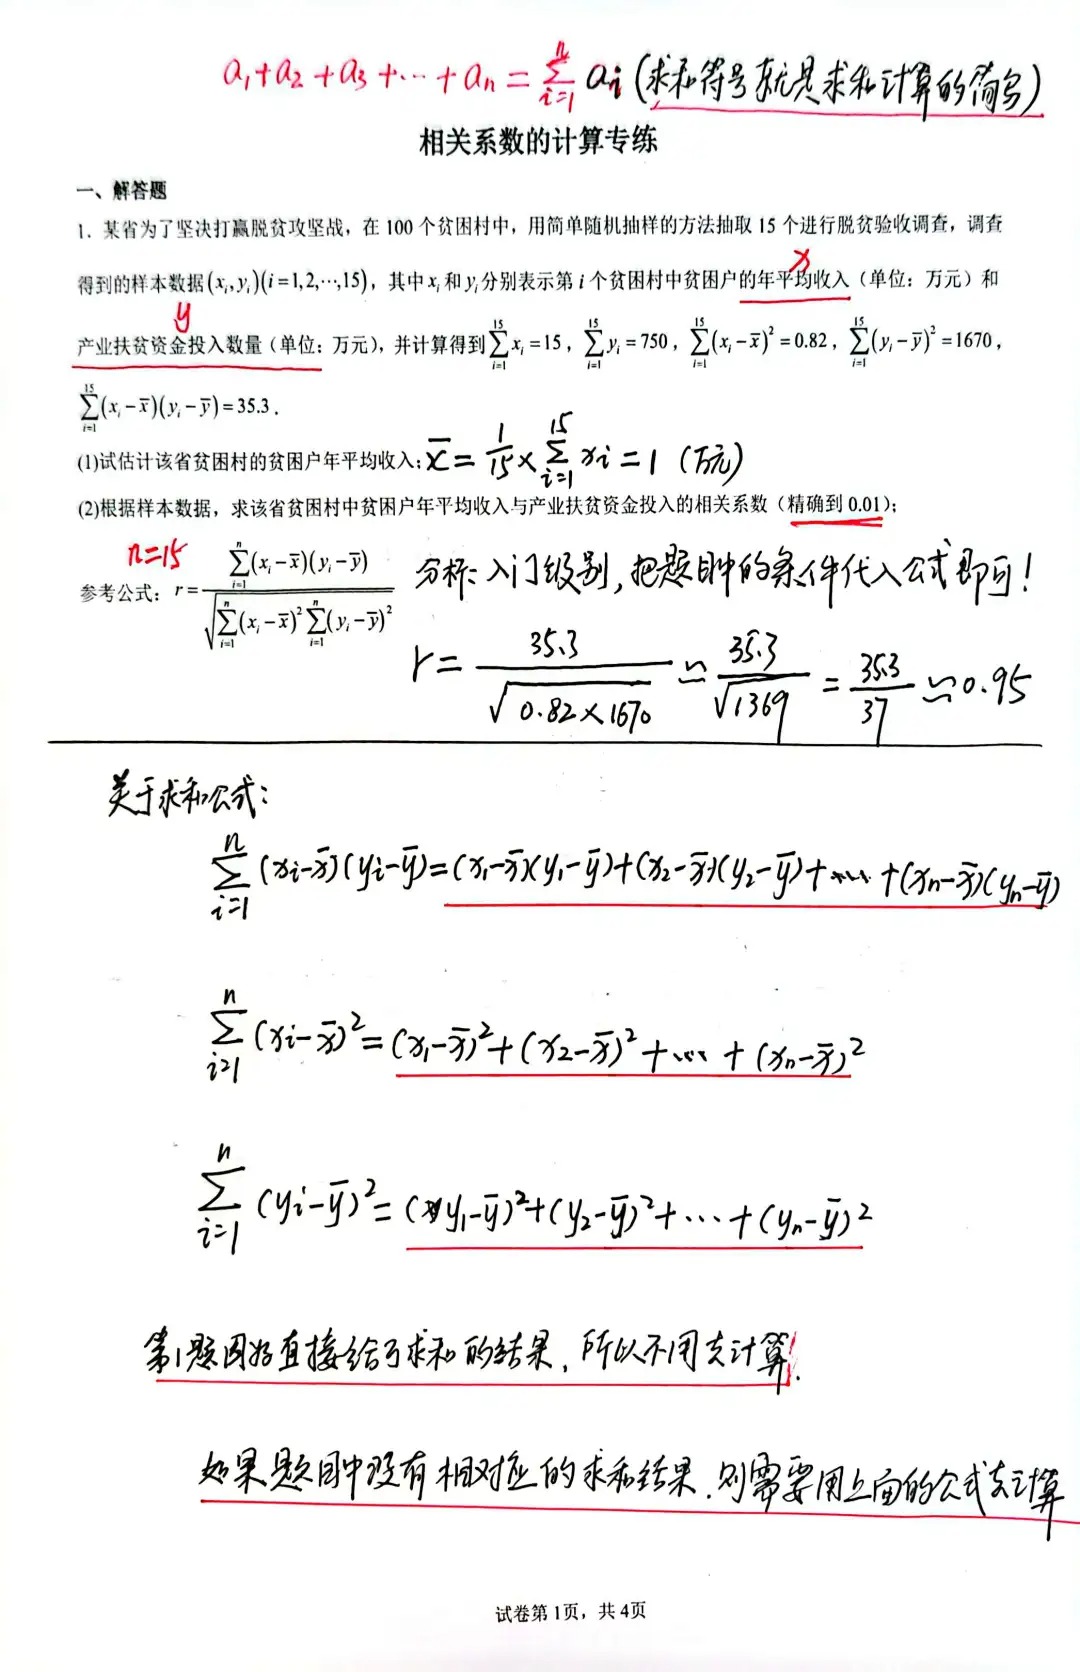 a₁+a₂+a₃+…+aₙ=∑_{i=1}^{n} aᵢ(求和符号就是求和计算的简写)
相关系数的计算专练
一、解答题
1. 某省为了坚决打赢脱贫攻坚战，在 100 个贫困村中，用简单随机抽样的方法抽取 15 个进行脱贫验收调查，调查
x
得到的样本数据(xᵢ,yᵢ)(i=1,2,⋯,15)，其中 xᵢ 和 yᵢ 分别表示第 i 个贫困村中贫困户的年平均收入（单位：万元）和
y
产业扶贫资金投入数量（单位：万元），并计算得到∑_{i=1}^{15} xᵢ=15，∑_{i=1}^{15} yᵢ=750，∑_{i=1}^{15}(xᵢ−x̄)²=0.82，∑_{i=1}^{15}(yᵢ−ȳ)²=1670，
∑_{i=1}^{15}(xᵢ−x̄)(yᵢ−ȳ)=35.3．
(1)试估计该省贫困村的贫困户年平均收入; x̄=1/15×∑_{i=1}^{15} xᵢ=1 (万元)
(2)根据样本数据，求该省贫困村中贫困户年平均收入与产业扶贫资金投入的相关系数（精确到 0.01）；
n=15
参考公式：r=∑_{i=1}^{n}(xᵢ−x̄)(yᵢ−ȳ)/√(∑_{i=1}^{n}(xᵢ−x̄)²∑_{i=1}^{n}(yᵢ−ȳ)²)
分析:入门级别,把题目中的条件代入公式即可!
r=35.3/√(0.82×1670)≈35.3/√1369=35.3/37≈0.95
关于求和公式:
∑_{i=1}^{n}(xᵢ-x̄)(yᵢ-ȳ)=(x₁-x̄)(y₁-ȳ)+(x₂-x̄)(y₂-ȳ)+…+(xₙ-x̄)(yₙ-ȳ)
∑_{i=1}^{n}(xᵢ-x̄)²=(x₁-x̄)²+(x₂-x̄)²+…+(xₙ-x̄)²
∑_{i=1}^{n}(yᵢ-ȳ)²=(y₁-ȳ)²+(y₂-ȳ)²+…+(yₙ-ȳ)²
第1题因为直接给了求和的结果,所以不用去计算!
如果题目中没有相对应的求和结果,则需要用上面的公式去计算
试卷第 1页，共 4页